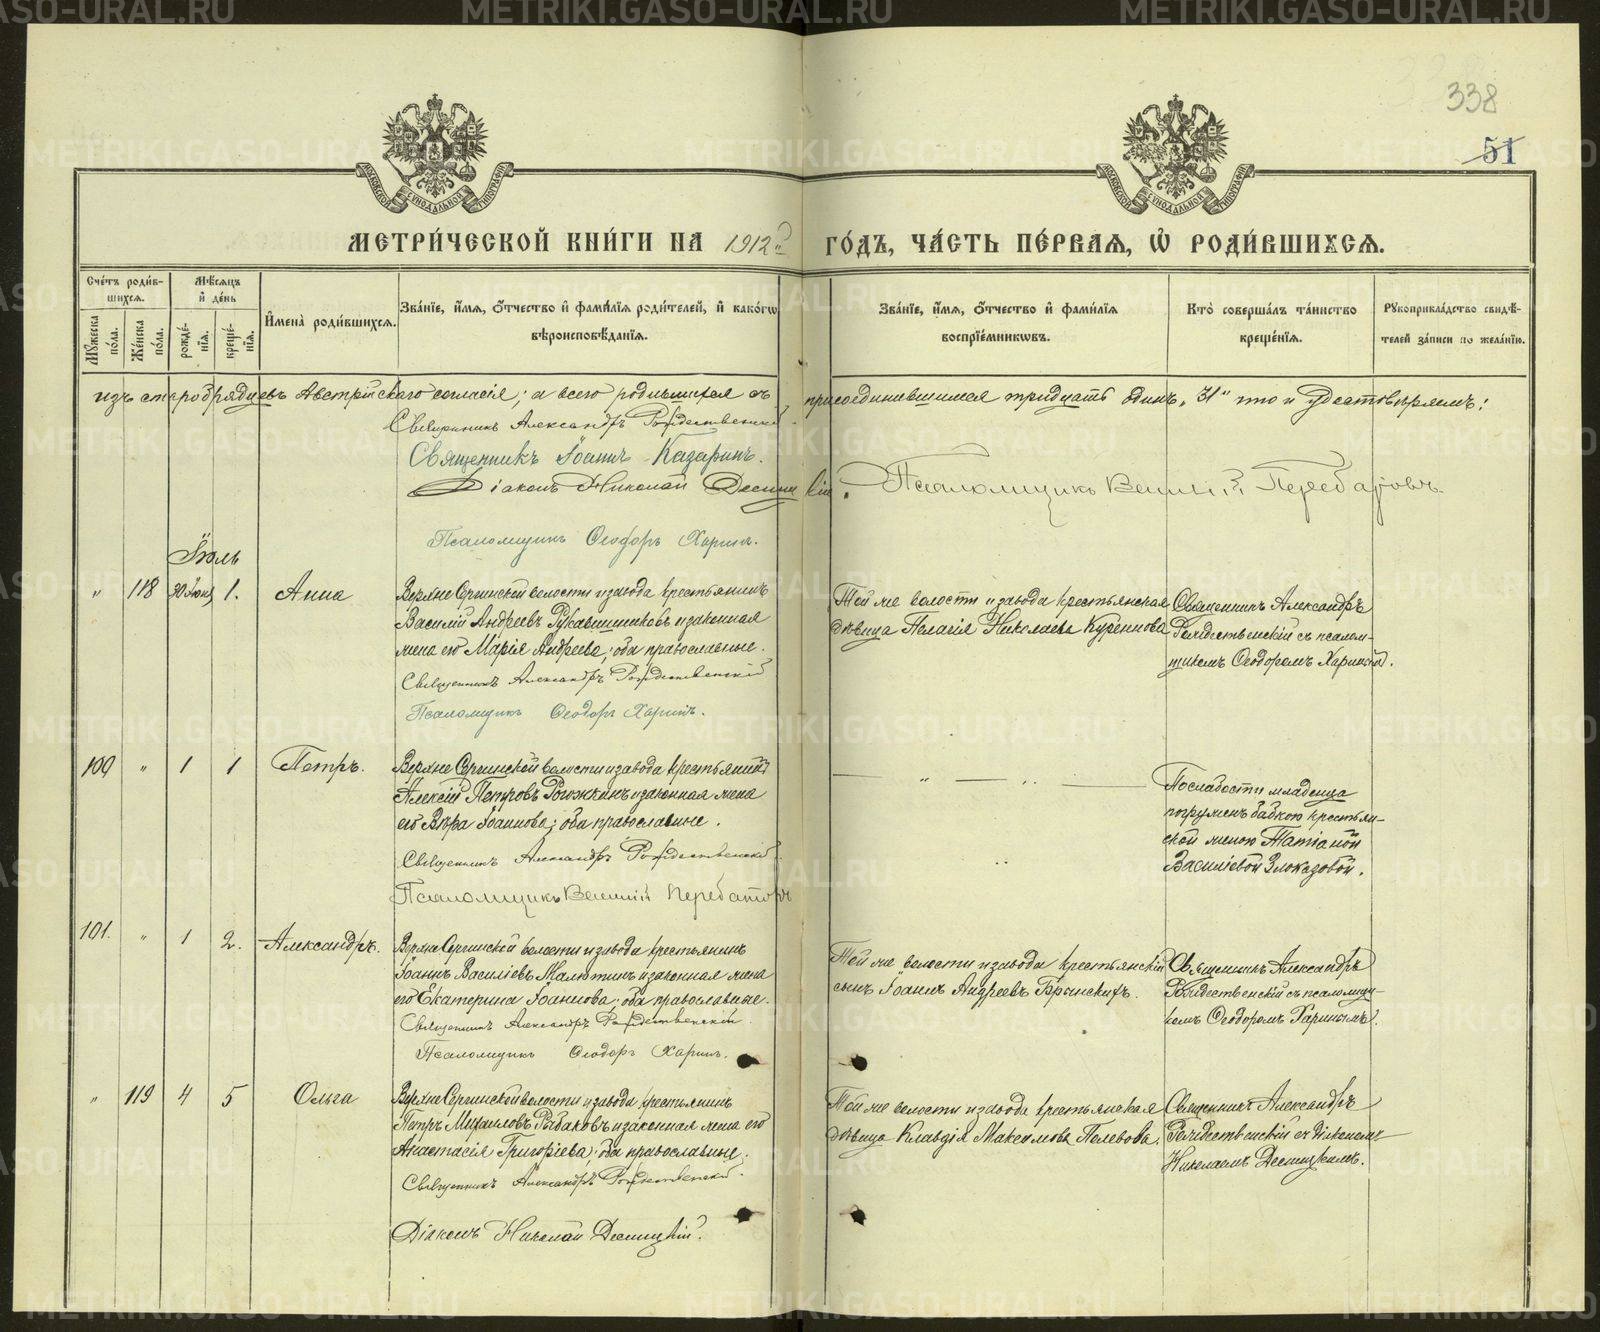 METRIKI.GASO-URAL.RU
338
51
МОСКОВСКОЙ СѴНОДАЛЬНОЙ ТИПОГРАФІИ
МОСКОВСКОЙ СѴНОДАЛЬНОЙ ТИПОГРАФІИ
МЕТРИ́ЧЕСКОЙ КНИ́ГИ НА 1912 ГО́ДЪ, ЧА́СТЬ ПЕ́РВАЯ, Ѽ РОДИ́ВШИХСЯ.
Сче́тъ роди́вшихся.
Мꙋ́жеска по́ла.
Же́нска по́ла.
Мѣ́сяцъ и де́нь
рожде́нія.
креще́нія.
И́мена роди́вшихся.
Зва́ніе, и́мя, ѻ́тчество и фами́лія роди́телей, и како́гѡ вѣроисповѣ́данія.
Зва́ніе, и́мя, ѻ́тчество и фами́лія воспріе́мникѡвъ.
Кто̀ соверша́лъ та́инство креще́нія.
Рꙋкоприкла́дство свидѣ́телей за́писи по жела́нію.
изъ старобрядцевъ Австрійскаго согласія; а всего родившихся съ присоединившимися тридцать одинъ „31“ что и удостовѣряемъ:
Священникъ Александръ Рождественскій
Священникъ Іоаннъ Казаринъ.
Діаконъ Николай Десницкій. Псаломщикъ Василій Перебатовъ.
Псаломщикъ Ѳеодоръ Харинъ.
Іюль
„ 118 30 Іюня 1. Анна
Верхне Сергинской волости и завода крестьянинъ
Василій Андреевъ Рукавишниковъ и законная
жена его Марія Андреева; оба православные.
Священникъ Александръ Рождественскій
Псаломщикъ Ѳеодоръ Харинъ.
Той же волости и завода крестьянская
дѣвица Пелагія Николаева Куреннова
Священникъ Александръ
Рождественскій съ псалом-
щикомъ Ѳеодоромъ Харинымъ.
100 „ 1 1 Петръ.
Верхне Сергинской волости и завода крестьянинъ
Алексій Петровъ Рогожкинъ и законная жена
его Вѣра Іоаннова; оба православные.
Священникъ Александръ Рождественскій.
Псаломщикъ Василій Перебатовъ
По слабости младенца
погруженъ бабкою крестьян-
ской женою Татіаной
Василіевой Злоказовой.
101. „ 1 2. Александръ.
Верхне Сергинской волости и завода крестьянинъ
Іоаннъ Василіевъ Малютинъ и законная жена
его Екатерина Іоаннова; оба православные.
Священникъ Александръ Рождественскій.
Псаломщикъ Ѳеодоръ Харинъ.
Той же волости и завода крестьянскій
сынъ Іоаннъ Андреевъ Брынскихъ.
Священникъ Александръ
Рождественскій съ псаломщи-
комъ Ѳеодоромъ Харинымъ.
„ 119 4 5 Ольга
Верхне Сергинской волости и завода крестьянинъ
Петръ Михаиловъ Рыбаковъ и законная жена его
Анастасія Григоріева; оба православные.
Священникъ Александръ Рождественскій.
Діаконъ Николай Десницкій.
Той же волости и завода крестьянская
дѣвица Клавдія Максимова Полевова.
Священникъ Александръ
Рождественскій съ діакономъ
Николаемъ Десницкимъ.